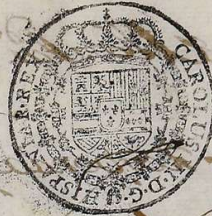 CAROLUS II · D · G · HISPANIAR · REX